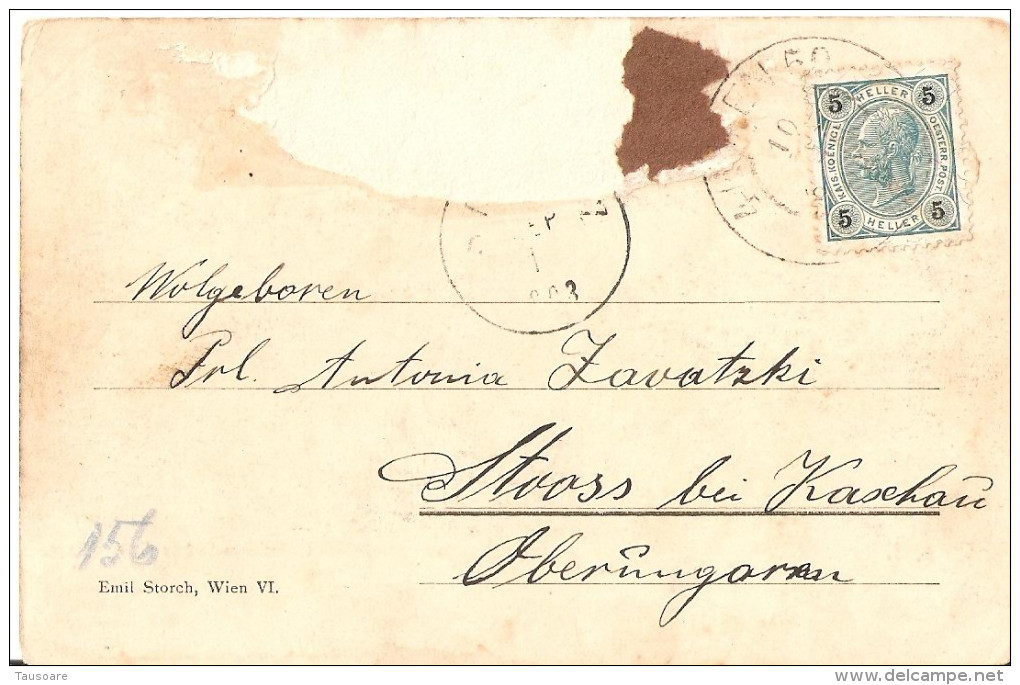 5 HELLER 5
KAIS. KOENIGL. OESTERR. POST.
5 HELLER 5
10
Wolgeboren
Frl. Antonia Zavatzki
Stooss bei Kaschau
Oberungarn
156
Emil Storch, Wien VI.
Tausoare
delcampe.net